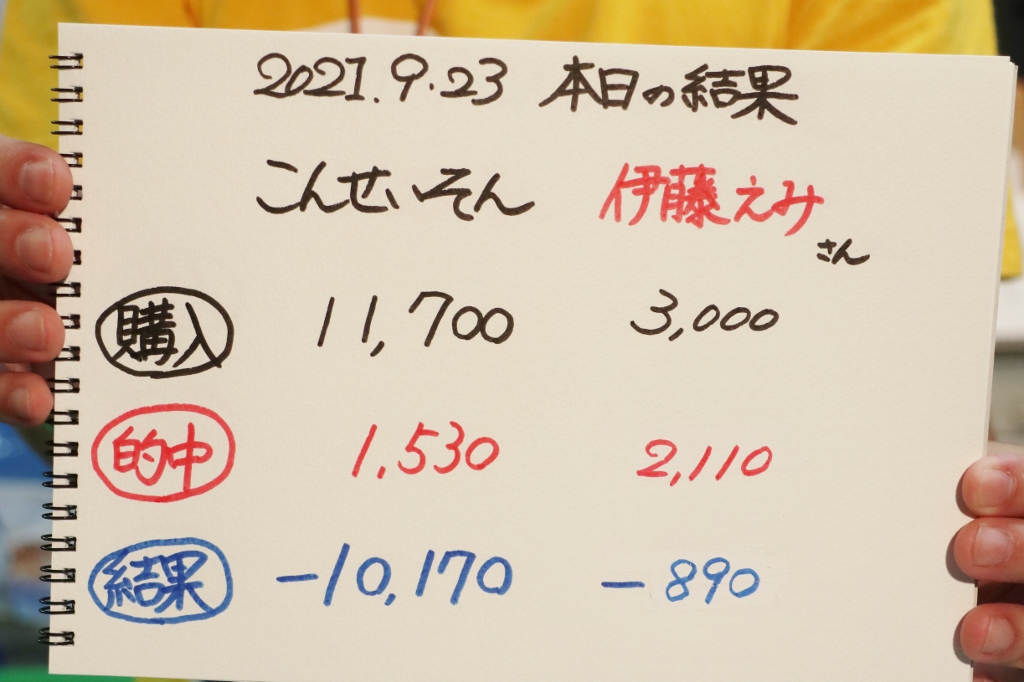 2021.9.23 本日の結果
こんせいそん 伊藤えみ
さん
購入 11,700 3,000
的中 1,530 2,110
結果 -10,170 -890